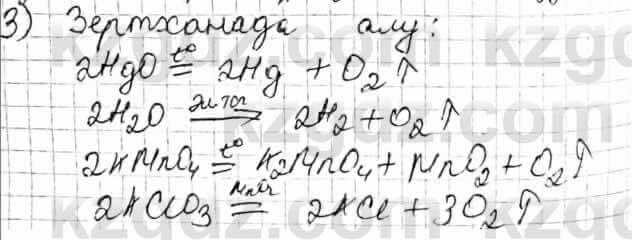 3) Зертханада алу:
2HgO =t°= 2Hg + O₂↑
2H₂O —эл.ток→ 2H₂ + O₂↑
2KMnO₄ =t°= K₂MnO₄ + MnO₂ + O₂↑
2KClO₃ =MnO₂= 2KCl + 3O₂↑